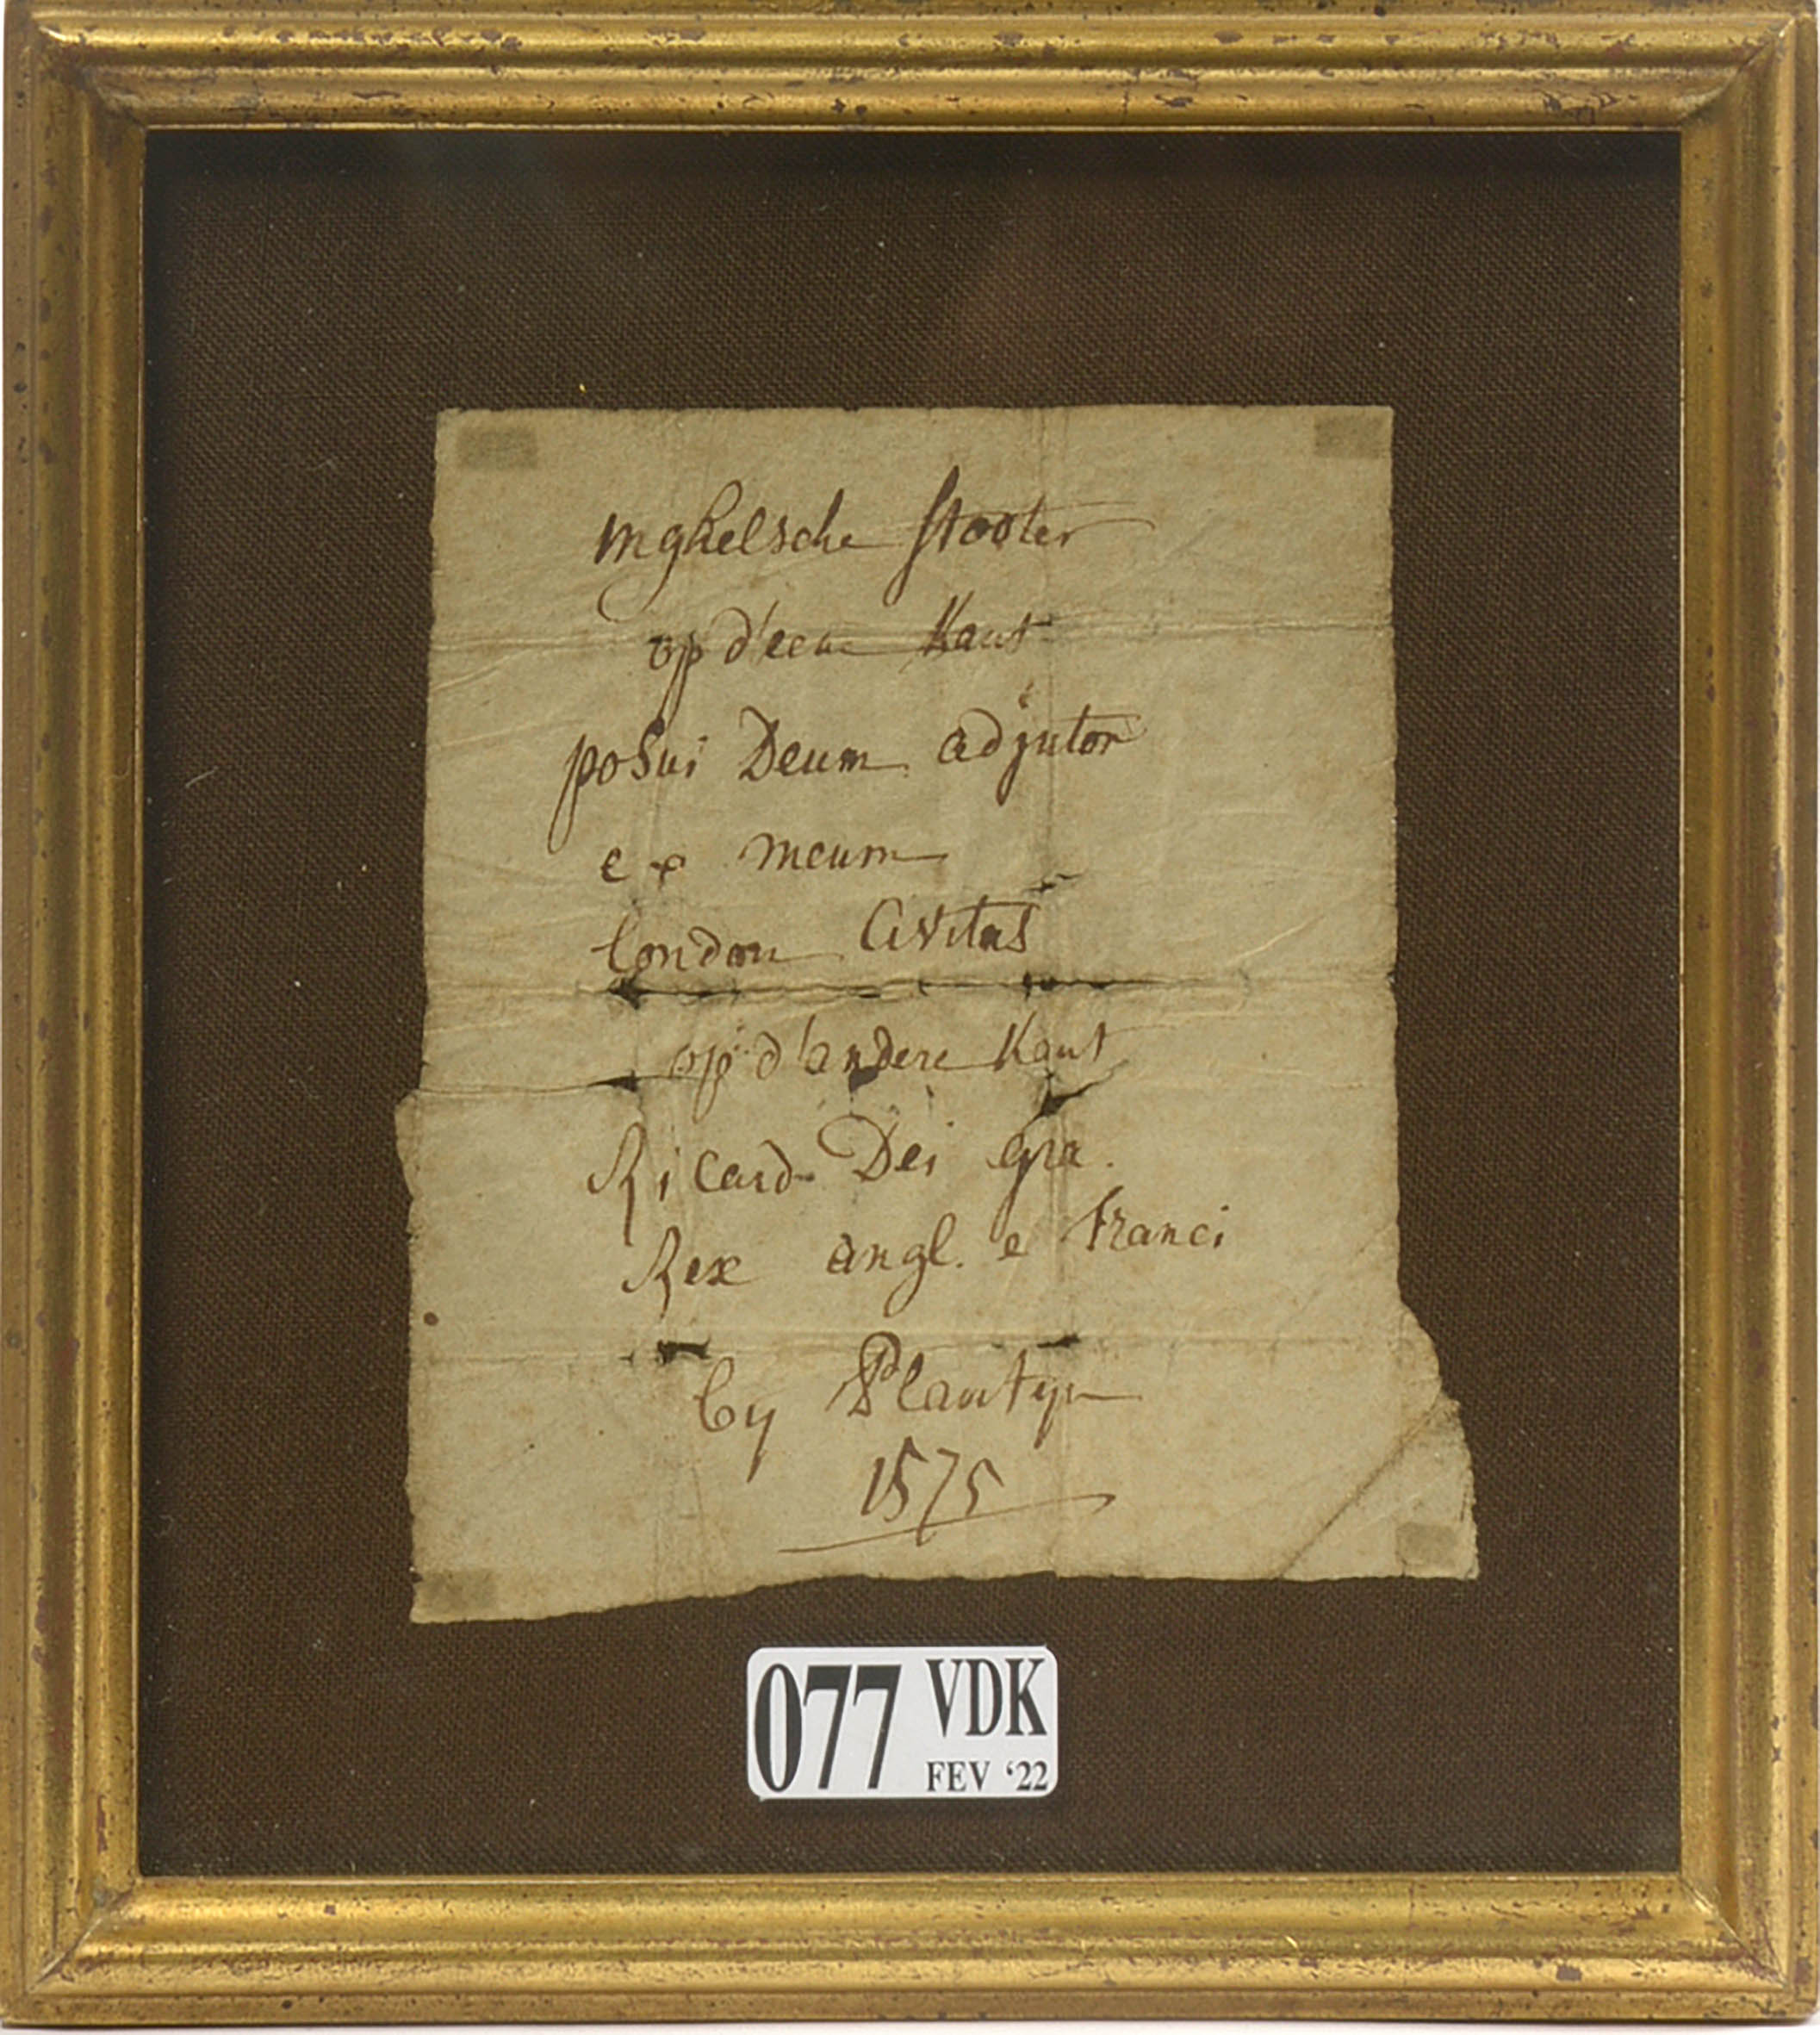 Inghelsche stooter
op d'eene Kant
posui Deum adjutor
e x meum
london Civitas
op d'andere Kant
Ricard Dei gra.
Rex angl. e franci
by Plantyn
1575
077 VDK
FEV '22